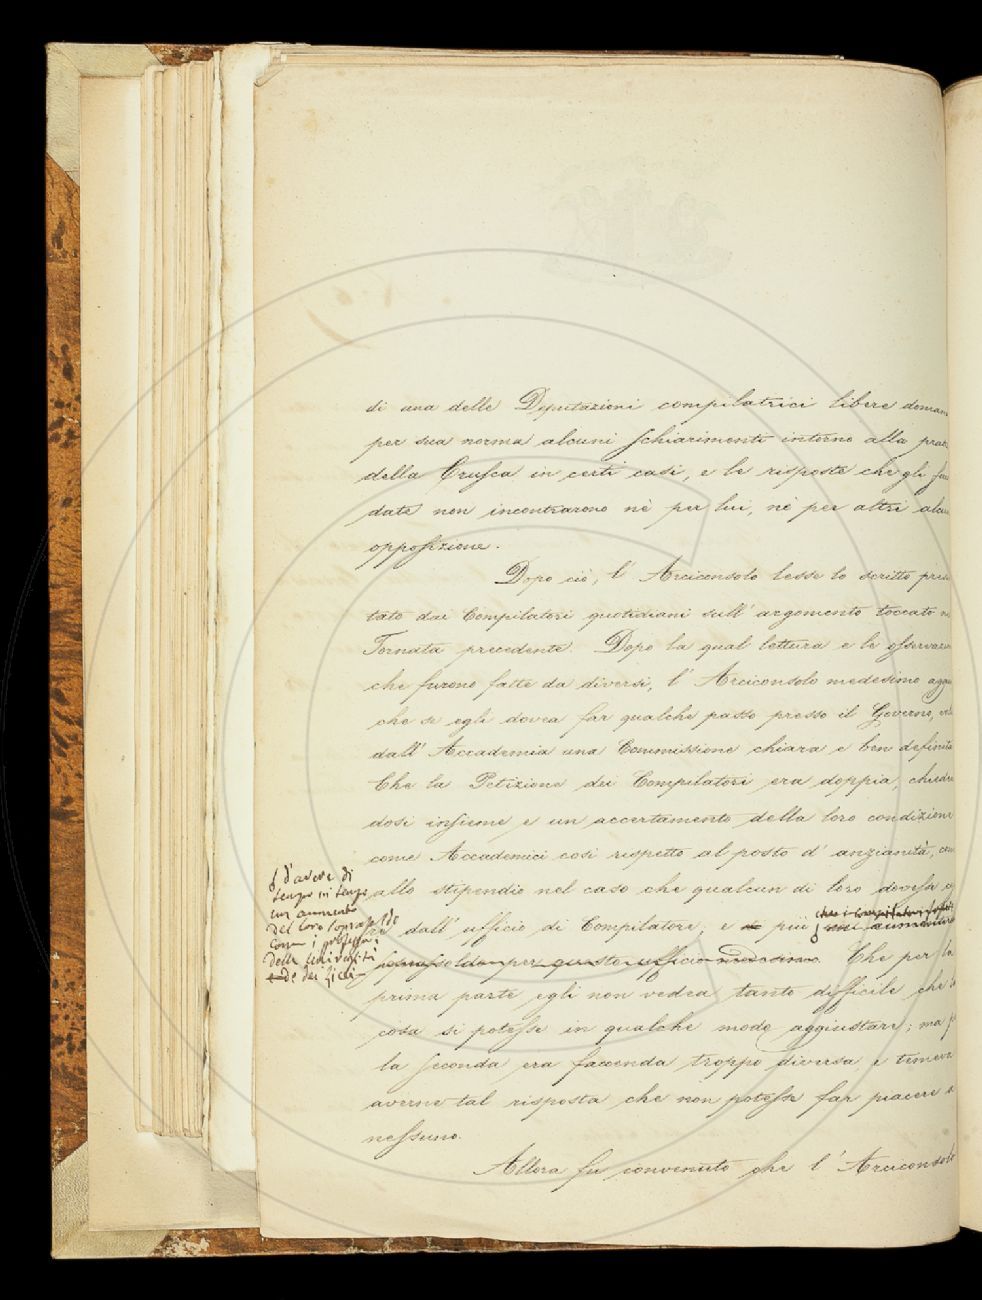 di una delle Deputazioni compilatrici libere doman
per sua norma alcuni schiarimenti intorno alla prat
della Crusca in certi casi, e le risposte che gli fur
date non incontrarono nè per lui, nè per altri alcu
opposizione.
Dopo ciò, l' Arciconsolo lesse lo scritto presen
tato dai Compilatori quotidiani sull' argomento toccato n
Tornata precedente. Dopo la qual lettura e le osservazio
che furono fatte da diversi, l' Arciconsolo medesimo aggiu
che se egli dovea far qualche passo presso il Governo,
dall' Accademia una Commissione chiara e ben definita
Che la Petizione dei Compilatori era doppia, chieden
dosi insieme e un accertamento della loro condizione
come Accademici così rispetto al posto d' anzianità, com
allo stipendio nel caso che qualcun di loro dovesse
dall' ufficio di Compilatore; e più
un aumento
soldo per questo ufficio medesimo. Che per la
prima parte egli non vedea tanto difficile che la
cosa si potesse in qualche modo aggiustare; ma
la seconda era faccenda troppo diversa, e temeva
averne tal risposta che non potesse far piacere a
nessuno.
Allora fu convenuto che l' Arciconsolo
d'avere di
tempo in tempo
un aumento
del loro soprasoldo
come i professori
delle Università
e de' Licei